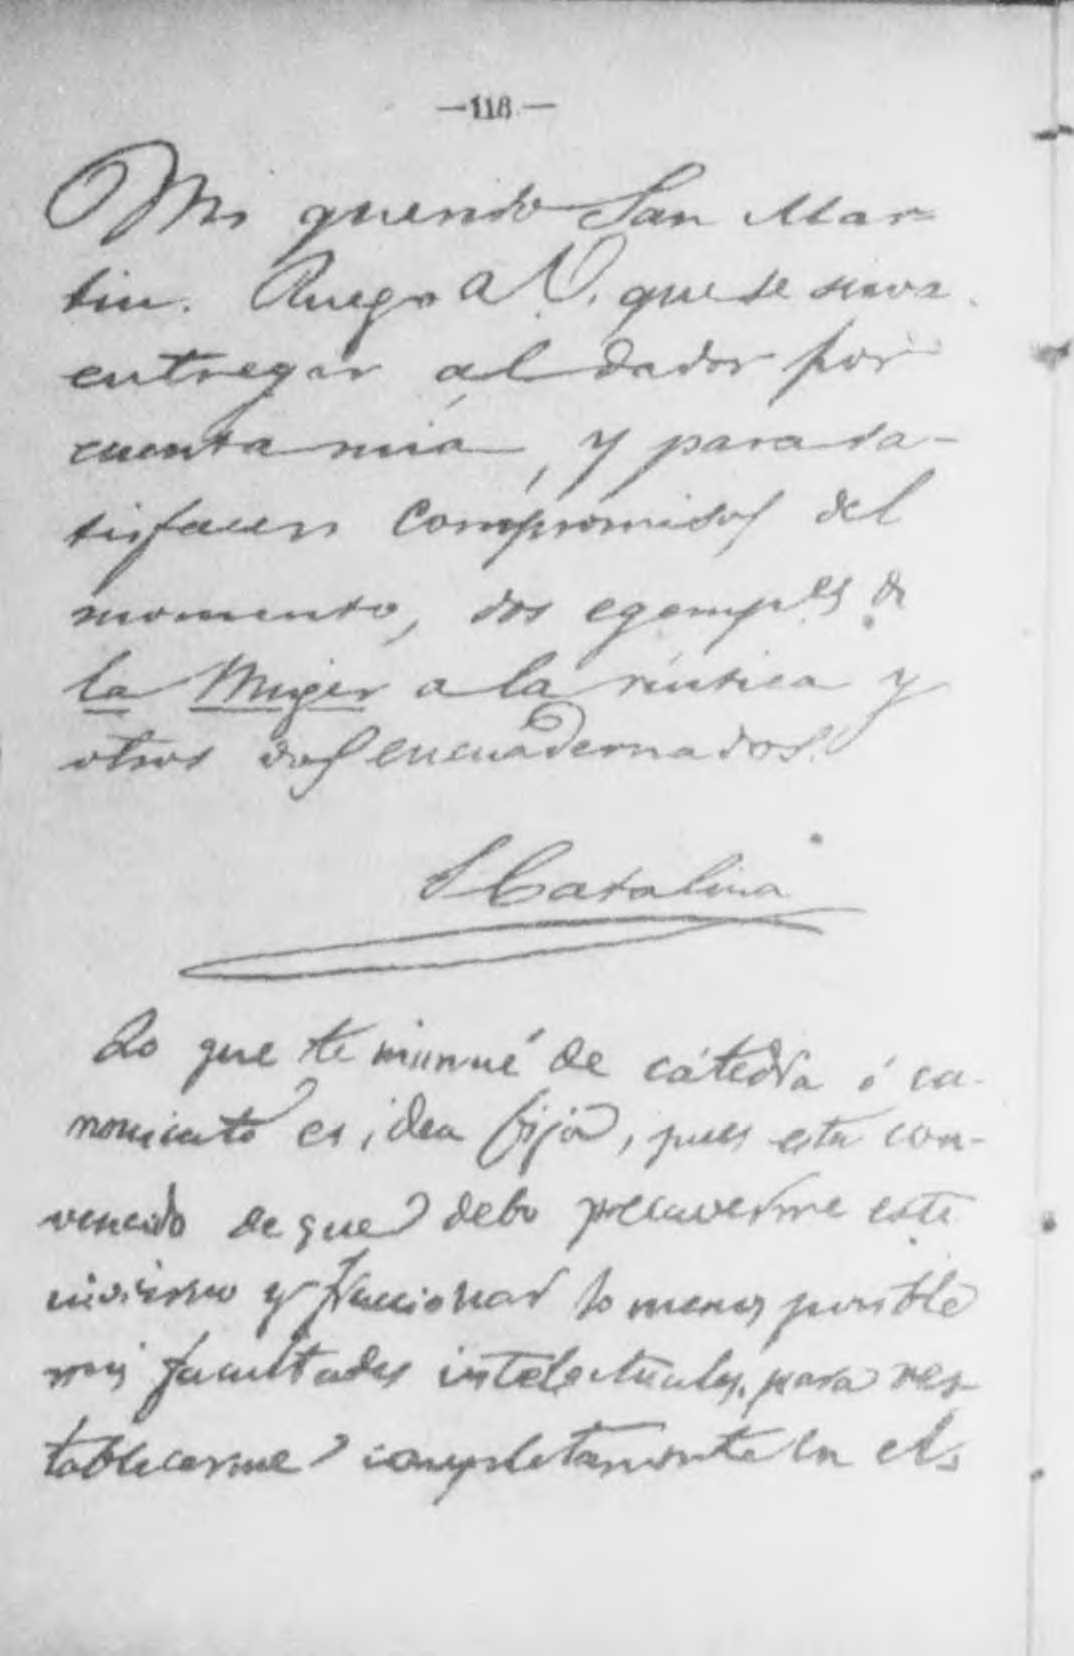 —118—
Mi querido San Mar-
tin. Ruego a V. que se sirva
entregar al dador por
cuenta mia, y para sa-
tisfacer compromisos del
momento, dos egempl.es de
la Muger a la rústica y
otros dos encuadernados.
S Catalina
Lo que te insinué de cátedra ó ca-
nonicato es idea fija, pues estoy con-
vencido de que debo precaverme este
invierno y fraccionar lo menos posible
mis facultades intelectuales, para res-
tablecerme completamente en el